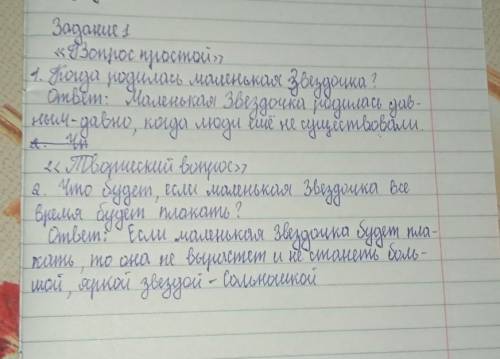 Задание 1
«Вопрос простой»
1. Когда родилась маленькая Звездочка?
Ответ: Маленькая Звездочка родилась дав-
ным-давно, когда люди ещё не существовали.
2. Чт
«Творческий вопрос»
2. Что будет, если маленькая Звездочка все
время будет плакать?
Ответ: Если маленькая Звездочка будет пла-
кать, то она не вырастет и не станеть боль-
шой, яркой звездой - Солнышкой